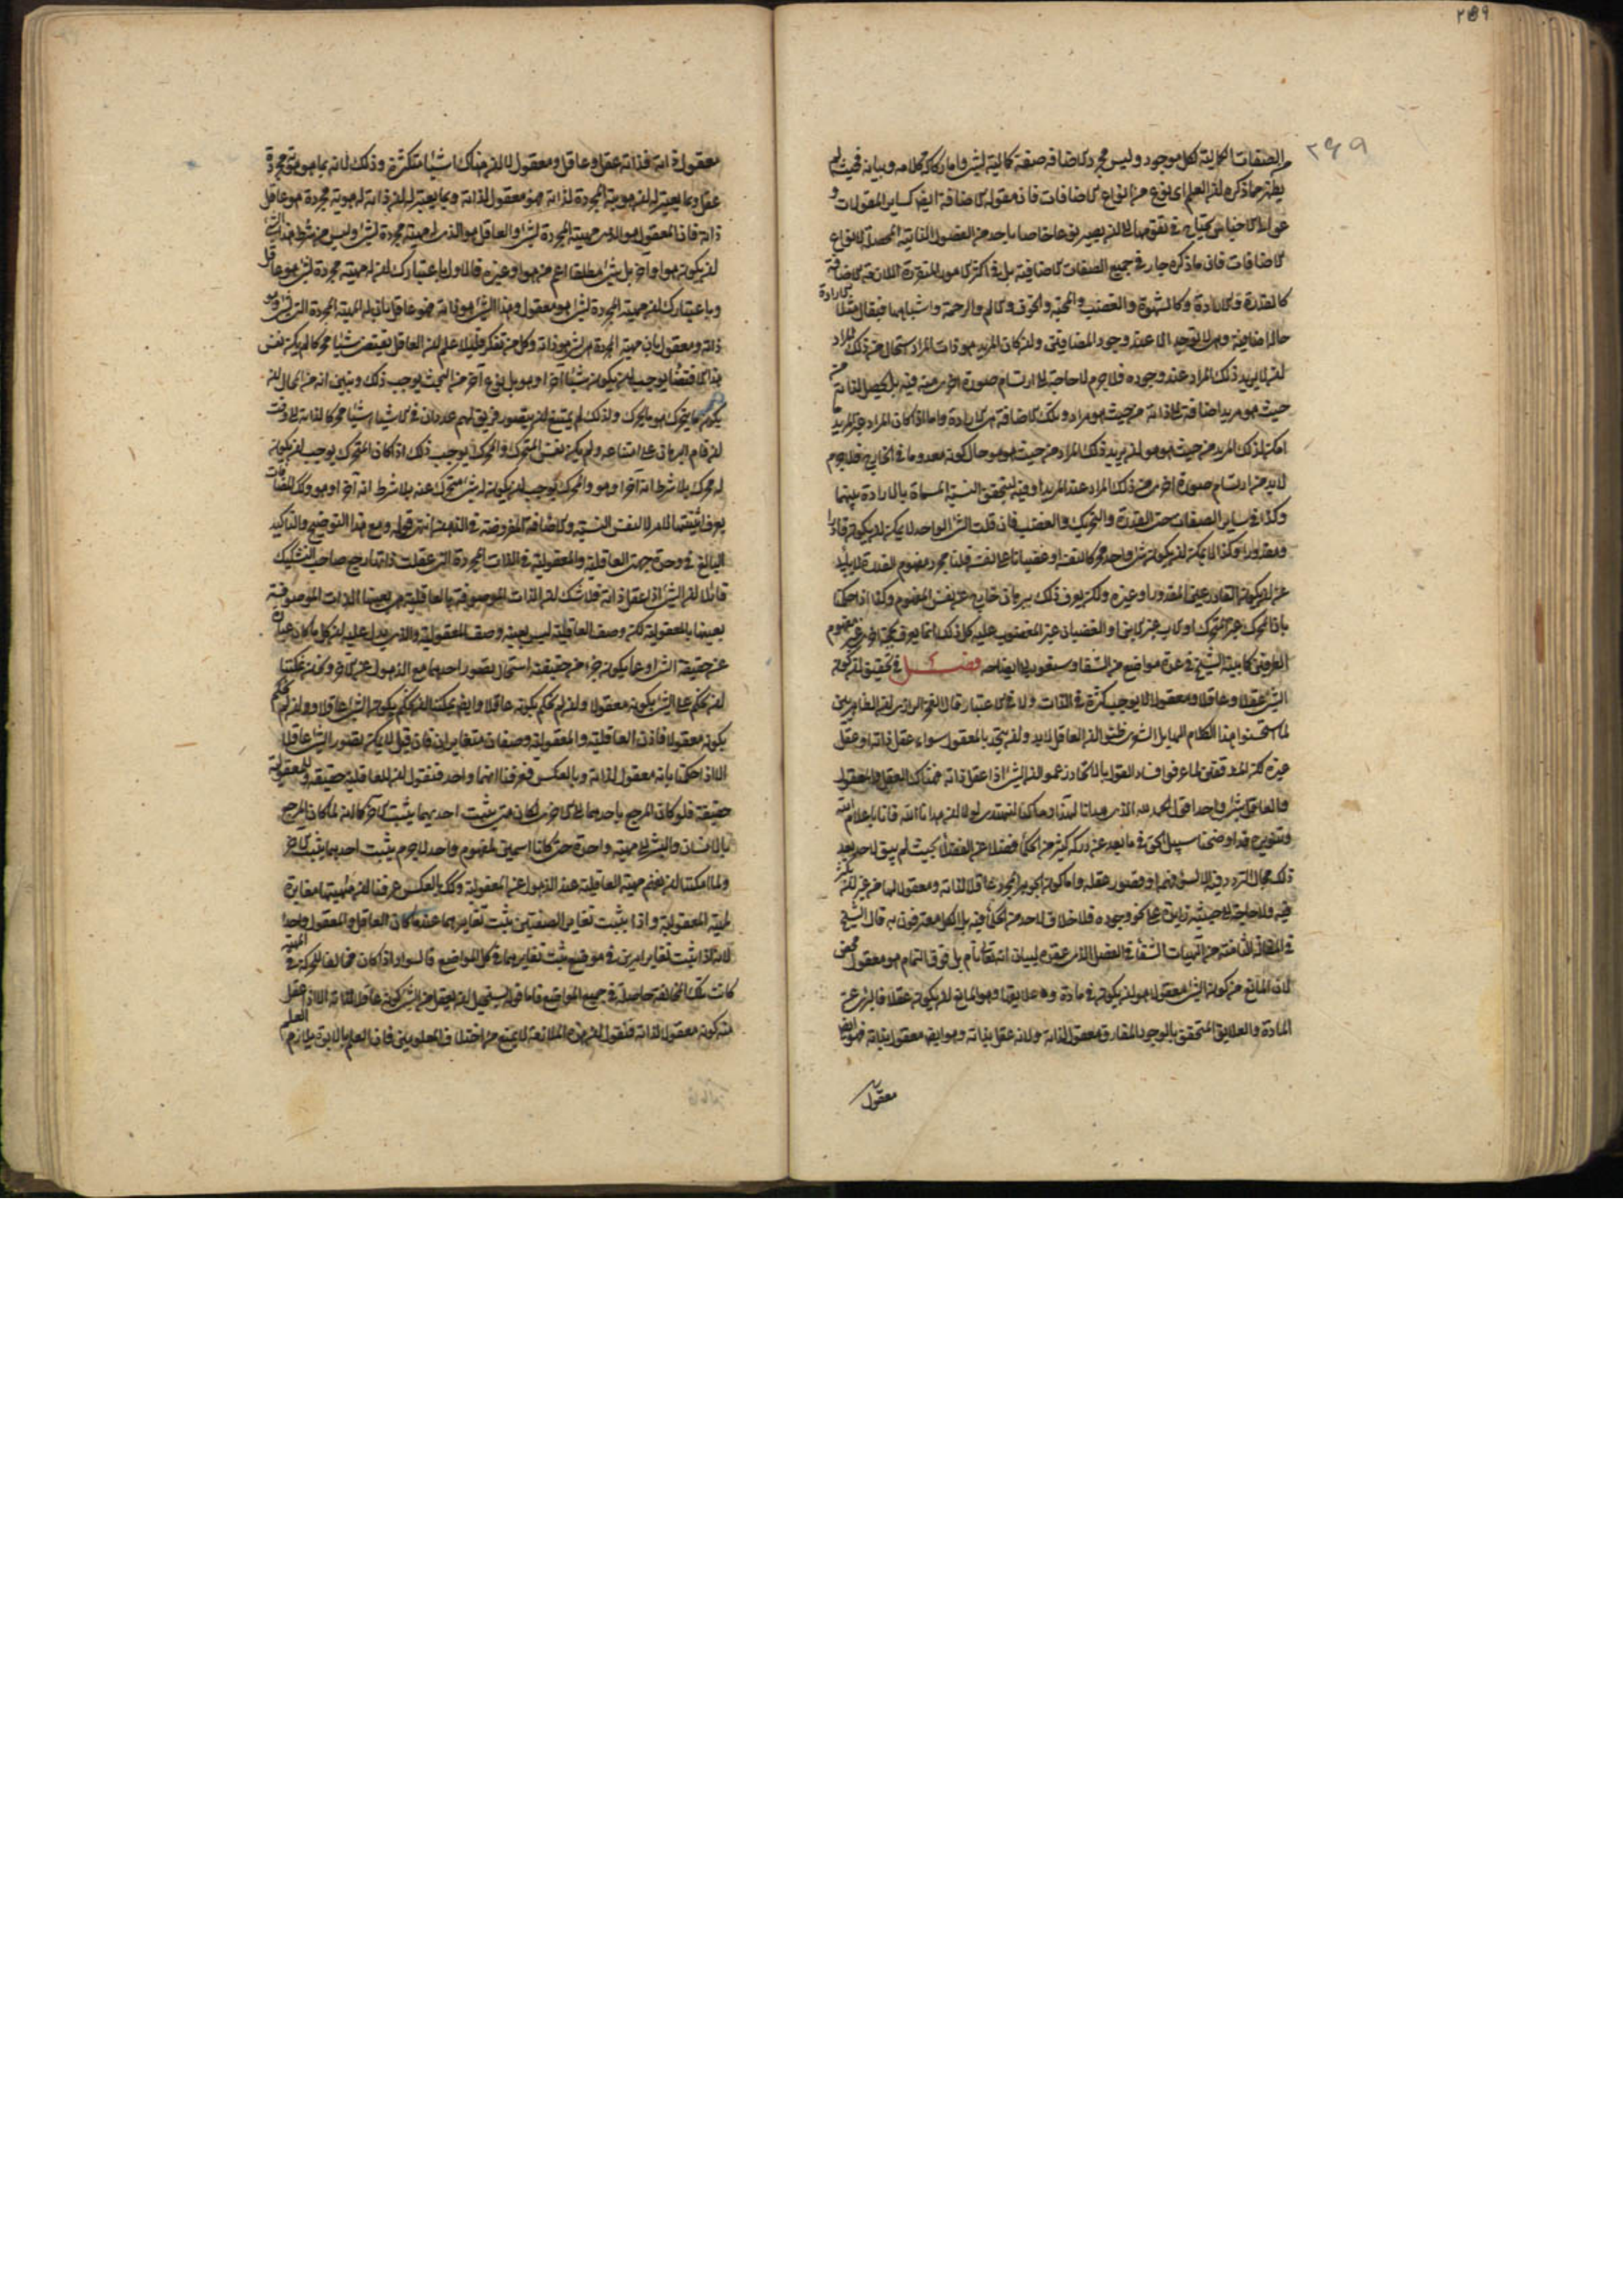 من الصفات الكمالية لكل موجود وليس مجرد الاضافة صفة كمالية لشئ واما ركاكة كلامه وبيانه فحيث لم
يظهر مما ذكره ان العلم اى نوع من انواع الاضافات فان مقولة الاضافة ايضا كساير المقولات و
عوالى الاجناس يحتاج فى تقومها الى ان يصير نوعا خاصا باحد من الفصول الذاتية المحصلة لانواع
الاضافات فان ما ذكره جار فى جميع الصفات الاضافية بل فى اكثر الامور المتقررة اللازمة الاضافة
كالقدرة والارادة وكالشهوة والغضب والمحبة والخوف والالم والرحمة واشباهها فيقال مثلا الارادة
حالة اضافية وهى لا توجد الا عند وجود المضافين ولئن كان المريد هو ذات المراد استحال من ذلك المراد
ان لا يريد ذلك المراد عند وجوده فلا جرم لا حاجة الى ارتسام صورة اخرى منه فيه بل يحصل لذاته من
حيث هو مريد اضافة الى ذاته من حيث هو مراد وتلك الاضافة هى الارادة واما اذا كان المراد غير المريد
امكن لذلك المريد من حيث هو هو ان يريد ذلك المراد من حيث هو هو حال كونه معدوما فى الخارج فلا جرم
لا بد من ارتسام صورة اخرى من ذلك المراد عند المريد او فيه ليتحقق النسبة المسماة بالارادة بينهما
وكذا فى ساير الصفات حتى القدرة والتحريك والغضب فان قلت الشئ الواحد لا يمكن ان يكون قادرا
ومقدورا وكذا لا يمكن ان يكون شئ واحد محركا لنفسه او غضبانا على نفسه قلنا مجرد مفهوم القدرة لا يأبى
عن ان يكون القادر عين المقدور او غيره ولكن يعرف ذلك ببرهان خارج عن نفس المفهوم وكذا اذا حكمنا
بان المحرك غير المتحرك او الاب غير الابن او الغضبان غير المغضوب عليه كل ذلك انما يعرف بحجة اخرى غير مفهوم
الطرفين كما بينه الشيخ فى عدة مواضع من الشفا وسنعود الى ايضاحه فصل فى تحقيق ان كون
الشئ عقلا وعاقلا ومعقولا لا يوجب كثرة فى الذات ولا فى الاعتبار قال الفخر الرازى ان الظاهريين
لما استحسنوا هذا الكلام الهايل الشعرى ظنوا ان العاقل لا بد وان يتحد بالمعقول سواء عقل ذاته او عقل
غيره لكن المدققين لما عرفوا فساد القول بالاتحاد زعموا ان الشئ اذا عقل ذاته فهناك العقل والمعقول
والعاقل شئ واحد اقول الحمد لله الذى هدانا لهذا وما كنا لنهتدى لولا ان هدانا الله فانا باعلام الله
وتنويره قد اوضحنا سبيل الحق فيما بعد عن دركه كثير من الحكما فضلا عن الفضلا بحيث لم يبق لاحد بعد
ذلك مجال التردد فيه الا لسوء فهمه او قصور عقله واما كون الجوهر المجرد عاقلا لذاته ومعقولا لها من غير تكثر
فيه ولا حاجة الى حيثية زايدة على نحو وجوده فلا خلاف لاحد من الحكما فيه بل الكل معترفون به قال الشيخ
فى المقالة الثامنة من الهيات الشفا فى الفصل الذى عقده لبيان انه تعالى تام بل فوق التمام هو معقول محض
لان المانع من كون الشئ معقولا هو ان يكون فى مادة وعلايقها وهو المانع ان يكون عقلا فالبرئ عن
المادة والعلايق المتحقق بالوجود المفارق معقول لذاته ولانه عقل بذاته وهو ايضا معقول بذاته فهو ايضا
معقول
معقول ذاته فذاته عقل وعاقل ومعقول لا ان هناك اشيا متكثرة وذلك لانه بما هو هوية مجردة
عقل وبما يعتبر له ان هويته المجردة لذاته فهو معقول لذاته وبما يعتبر له ان ذاته له هوية مجردة هو عاقل
ذاته فان المعقول هو الذى مهيته المجردة لشئ والعاقل هو الذى له مهية مجردة لشئ وليس من شرط هذا الشئ
ان يكون هو او آخر بل شئ مطلقا اعم من هو او غيره فالاول باعتبارك ان له مهية مجردة لشئ هو عاقل
وباعتبارك ان مهيته المجردة لشئ هو معقول وهذا الشئ هو ذاته فهو عاقل بان له المهية المجردة التى لشئ هو
ذاته ومعقول بان مهيته المجردة هى لشئ هو ذاته وكل من تفكر قليلا علم ان العاقل يقتضى شيئا معقولا
هذا الاقتضاء لا يوجب ان يكون شيئا آخر او هو بل نوع آخر من البحث يوجب ذلك وتبين انه من المحال ان
يكون ما يتحرك هو ما يحرك ولذلك لم يمتنع ان يتصور فريق لهم عدد ان فى الاشياء شيئا محركا لذاته الى وقت
ان قام البرهان على امتناعه ولم يكن نفس المتحرك والمحرك يوجب ذلك اذ كان المتحرك يوجب ان يكون
له محرك بلا شرط انه آخر او هو والمحرك يوجب ان يكون له شئ متحرك عنه بلا شرط انه آخر او هو وكذلك المضافات
يعرف اثنينيتها لامر لا لنفس النسبة والاضافة المفروضة فى الذهن انتهى قوله ومع هذا التوضيح والتاكيد
البالغ فى وحدة جهتى العاقلية والمعقولية فى الذات المجردة التى عقلت ذاتها رجع صاحب التشكيك
قائلا ان الشئ اذا عقل ذاته فلا شك ان الذات الموصوفة بالعاقلية هى بعينها الذات الموصوفة
بعينها بالمعقولية لكن وصف العاقلية ليس بعينه وصف المعقولية والذى يدل عليه ان كل ما كان عبارة
عن حقيقة الشئ او عما يكون جزء من حقيقته استحال تصور احدهما مع الذهول عن الآخر ونحن يمكننا
ان نحكم على الشئ بكونه معقولا وان لم نحكم بكونه عاقلا وايضا يمكننا ان نحكم بكون الشئ عاقلا وان لم نحكم
بكونه معقولا فاذن العاقلية والمعقولية وصفان متغايران فان قيل لا يمكن تصور الشئ عاقلا
الا اذا حكمنا بانه معقول لذاته وبالعكس فعرفنا انهما واحد فنقول ان للعاقلية حقيقة وللمعقولية
حقيقة فلو كان المرجع باحدهما الى الآخر لكان متى يثبت احدهما يثبت الآخر كما انه لما كان المرجع
بالانسان والبشر الى مهية واحدة حتى كانا اسمين لمفهوم واحد لا جرم يثبت احدهما يثبت الآخر
ولما امكننا ان نفهم مهية العاقلية عند الذهول عن المعقولية وكذلك بالعكس عرفنا ان مهيتها مغايرة
لمهية المعقولية واذا يثبت تغاير الصفتين يثبت تغايرهما عند ما كان العاقل والمعقول واحدا
لانه اذا يثبت تغاير امرين فى موضع يثبت تغايرهما فى كل المواضع فالسواد اذا كان مخالفا للحركة فى المهية
كانت تلك المخالفة حاصلة فى جميع المواضع فاما قوله يستحيل ان يعقل من الشئ كونه عاقلا لذاته الا اذا عقل
منه كونه معقولا لذاته فنقول ان هذه الملازمة لا يمنع من اختلاف المعلومين فان العلم بالابوة يلازم العلم